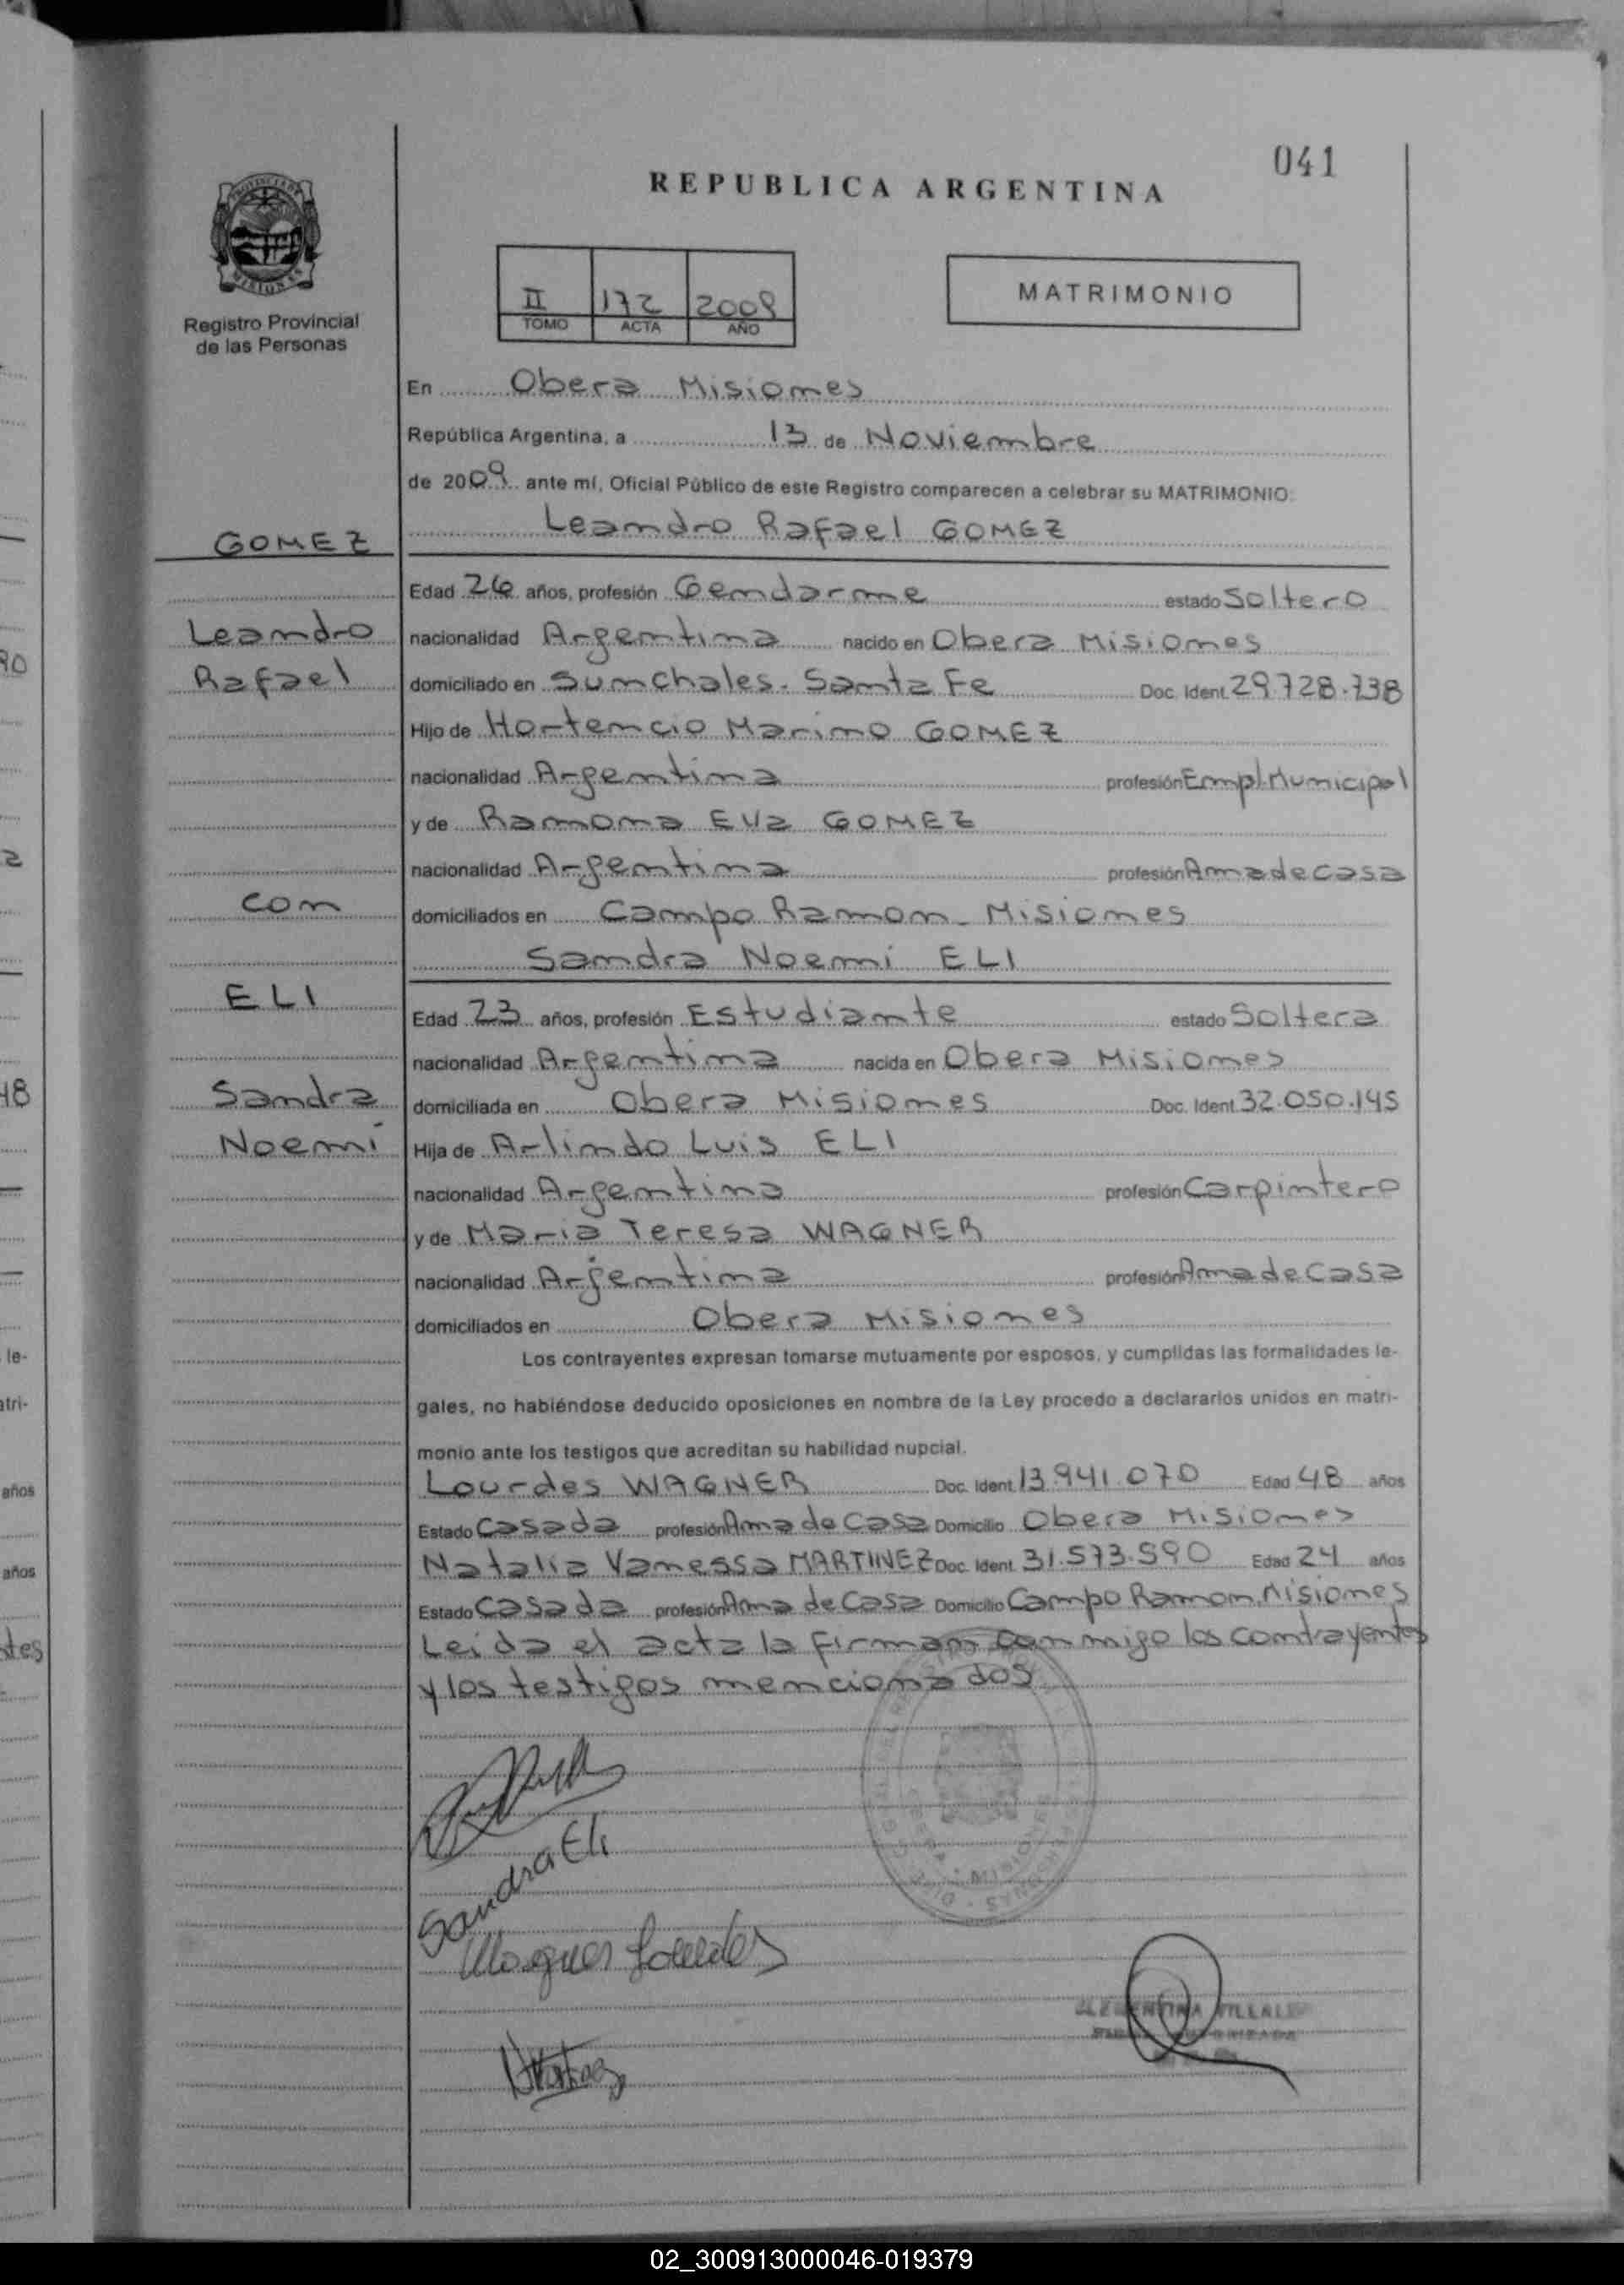 041
REPUBLICA ARGENTINA
PROVINCIA DE
MISIONES
Registro Provincial
de las Personas
II 172 2009
TOMO ACTA AÑO
MATRIMONIO
En Obera Misiones
República Argentina, a 13 de Noviembre
de 2009 ante mí, Oficial Público de este Registro comparecen a celebrar su MATRIMONIO:
GOMEZ
Leandro Rafael GOMEZ
Edad 26 años, profesión Gendarme estado Soltero
Leandro
nacionalidad Argentina nacido en Obera Misiones
Rafael
domiciliado en Sunchales. Santa Fe Doc. Ident. 29.728.738
Hijo de Hortencio Marino GOMEZ
nacionalidad Argentina profesión Empl. Municipal
y de Ramona Eva GOMEZ
nacionalidad Argentina profesión Ama de Casa
con
domiciliados en Campo Ramon - Misiones
Sandra Noemi ELI
ELI
Edad 23 años, profesión Estudiante estado Soltera
nacionalidad Argentina nacida en Obera Misiones
Sandra
domiciliada en Obera Misiones Doc. Ident. 32.050.145
Noemi
Hija de Arlindo Luis ELI
nacionalidad Argentina profesión Carpintero
y de Maria Teresa WAGNER
nacionalidad Argentina profesión Ama de Casa
domiciliados en Obera Misiones
Los contrayentes expresan tomarse mutuamente por esposos, y cumplidas las formalidades le-
gales, no habiéndose deducido oposiciones en nombre de la Ley procedo a declararlos unidos en matri-
monio ante los testigos que acreditan su habilidad nupcial.
Lourdes WAGNER Doc. Ident. 13.941.070 Edad 48 años
Estado Casada profesión Ama de Casa Domicilio Obera Misiones
Natalia Vanessa MARTINEZ Doc. Ident. 31.573.590 Edad 24 años
Estado Casada profesión Ama de Casa Domicilio Campo Ramon. Misiones
Leida el acta la firman conmigo los contrayentes
y los testigos mencionados
Sandra Eli
Wagner Lourdes
02_300913000046-019379